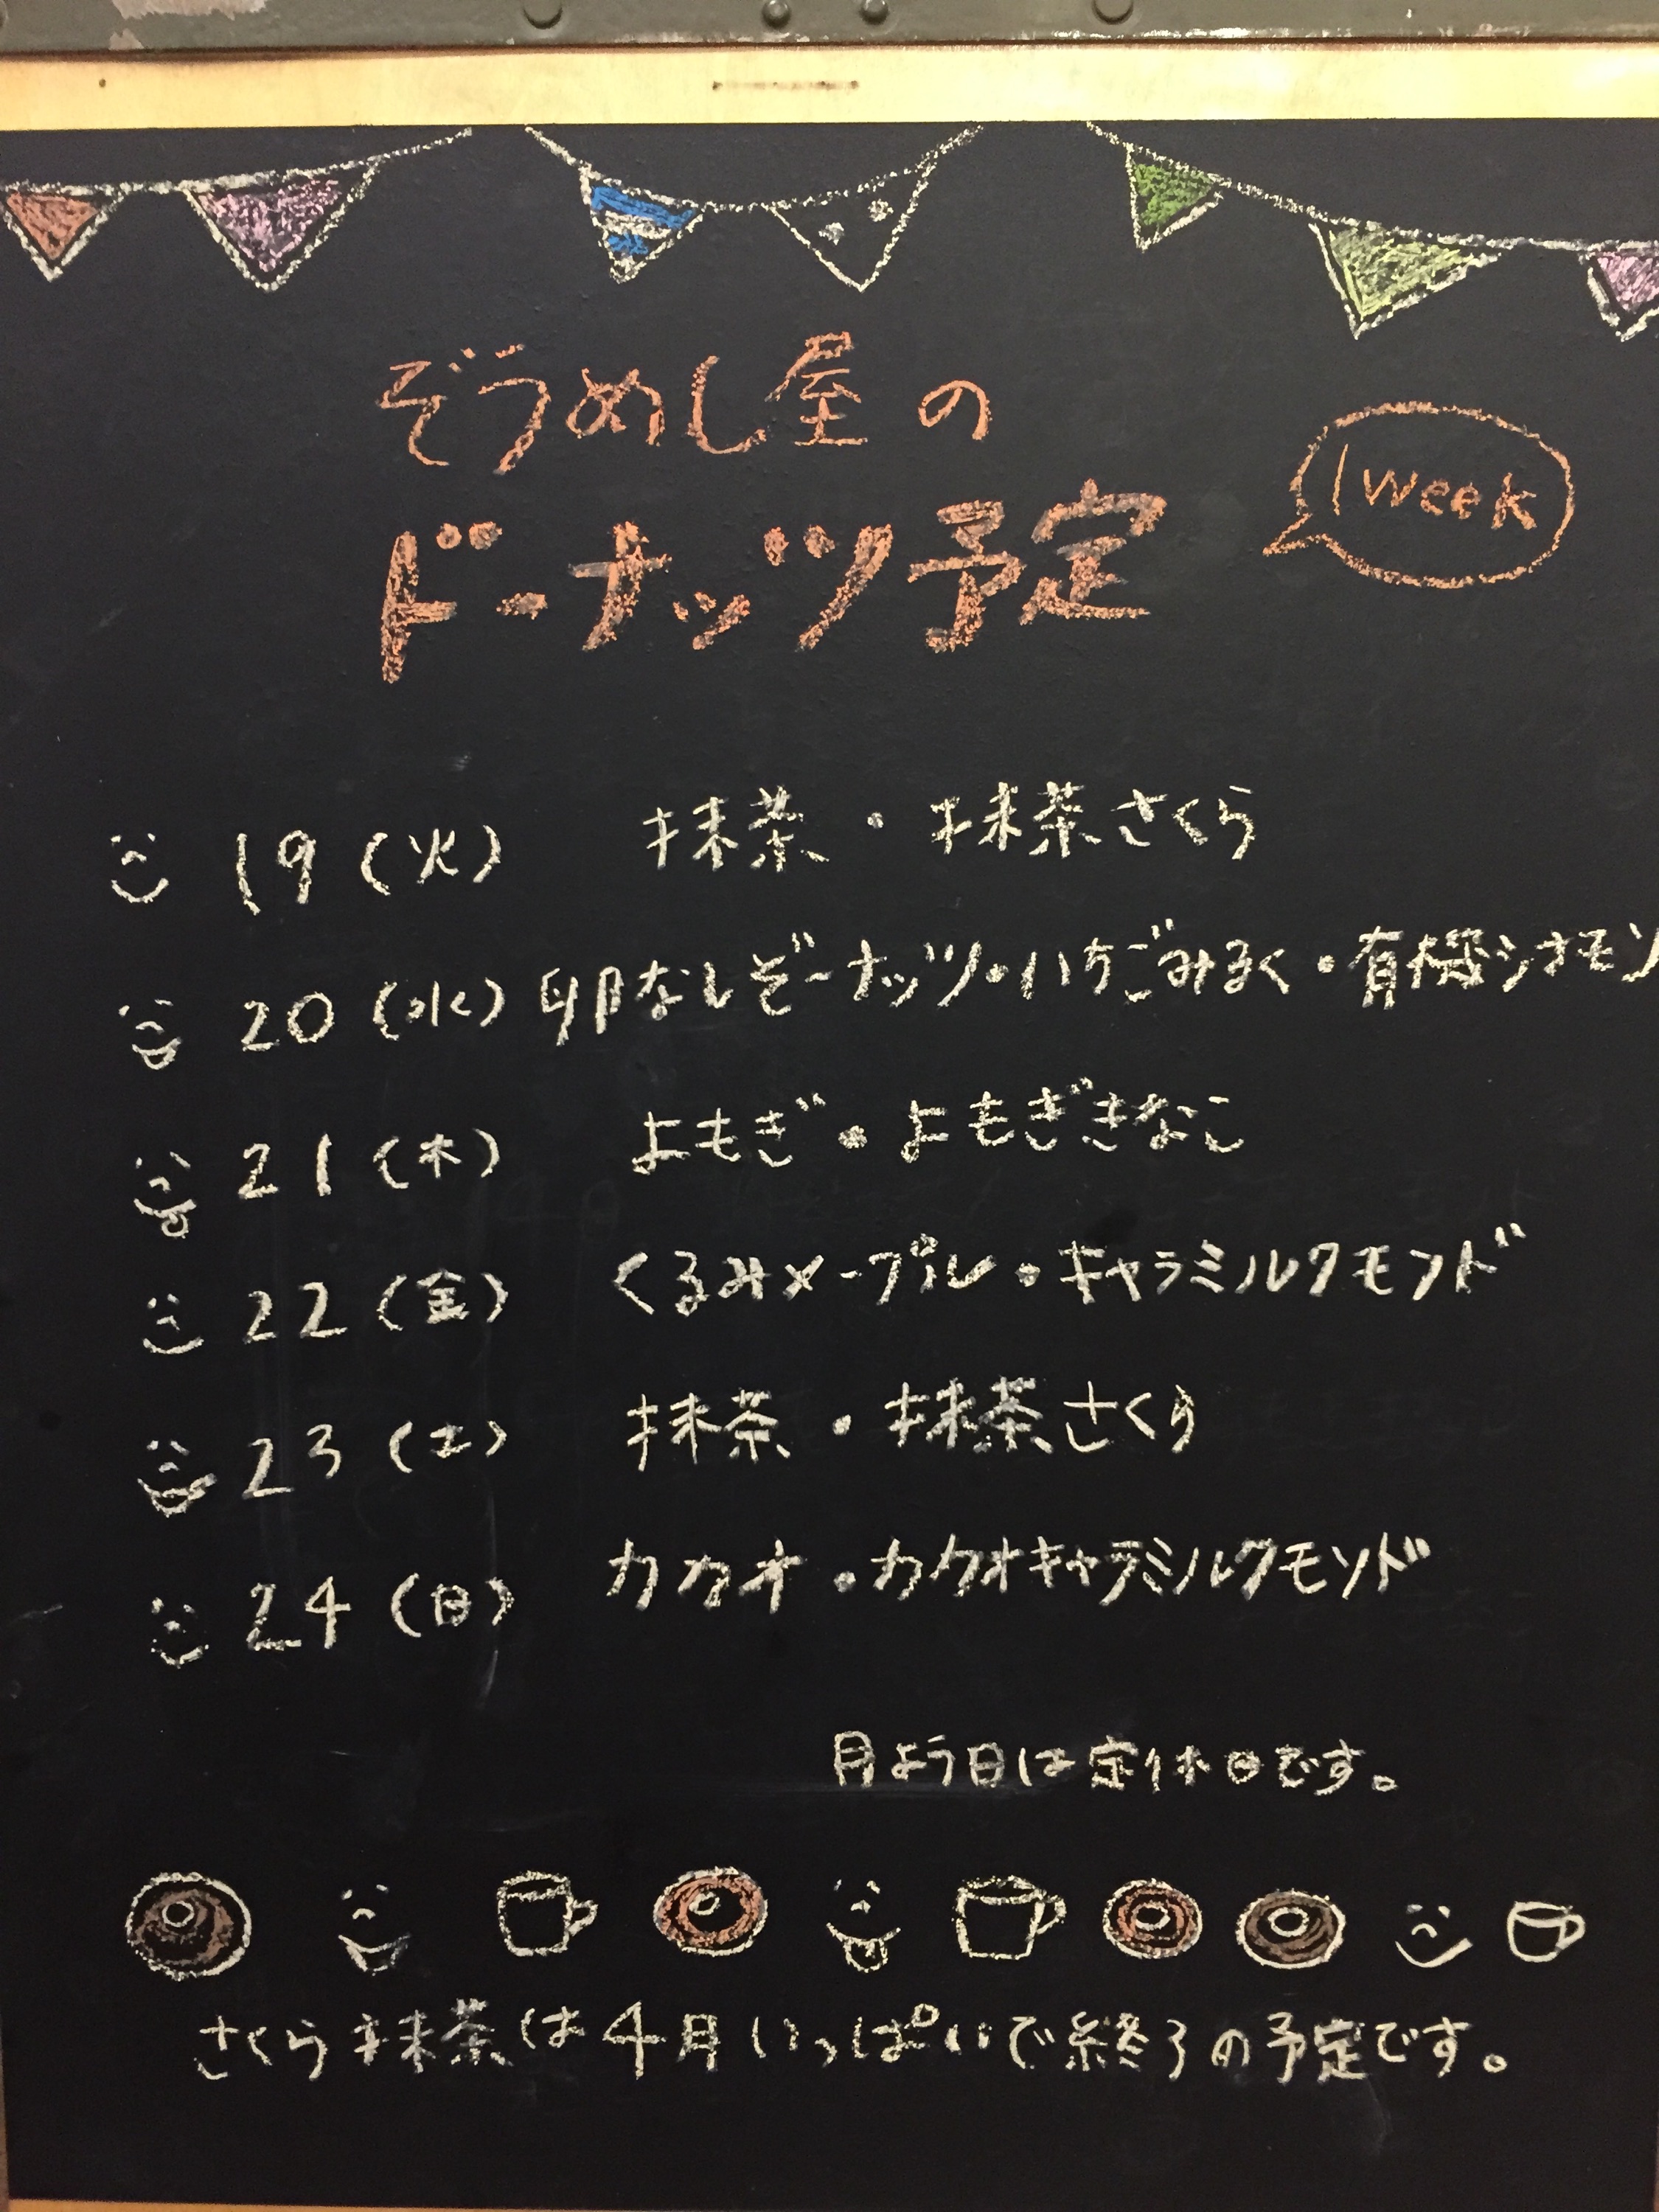 ぞうめし屋の
ドーナッツ予定
1week
19(火) 抹茶・抹茶さくら
20(水) 卵なしぞーナッツ・いちごみるく・有機シナモン
21(木) よもぎ・よもぎきなこ
22(金) くるみメープル・キャラミルクモンド
23(土) 抹茶・抹茶さくら
24(日) カカオ・カカオキャラミルクモンド
月よう日は定休日です。
さくら抹茶は4月いっぱいで終了の予定です。